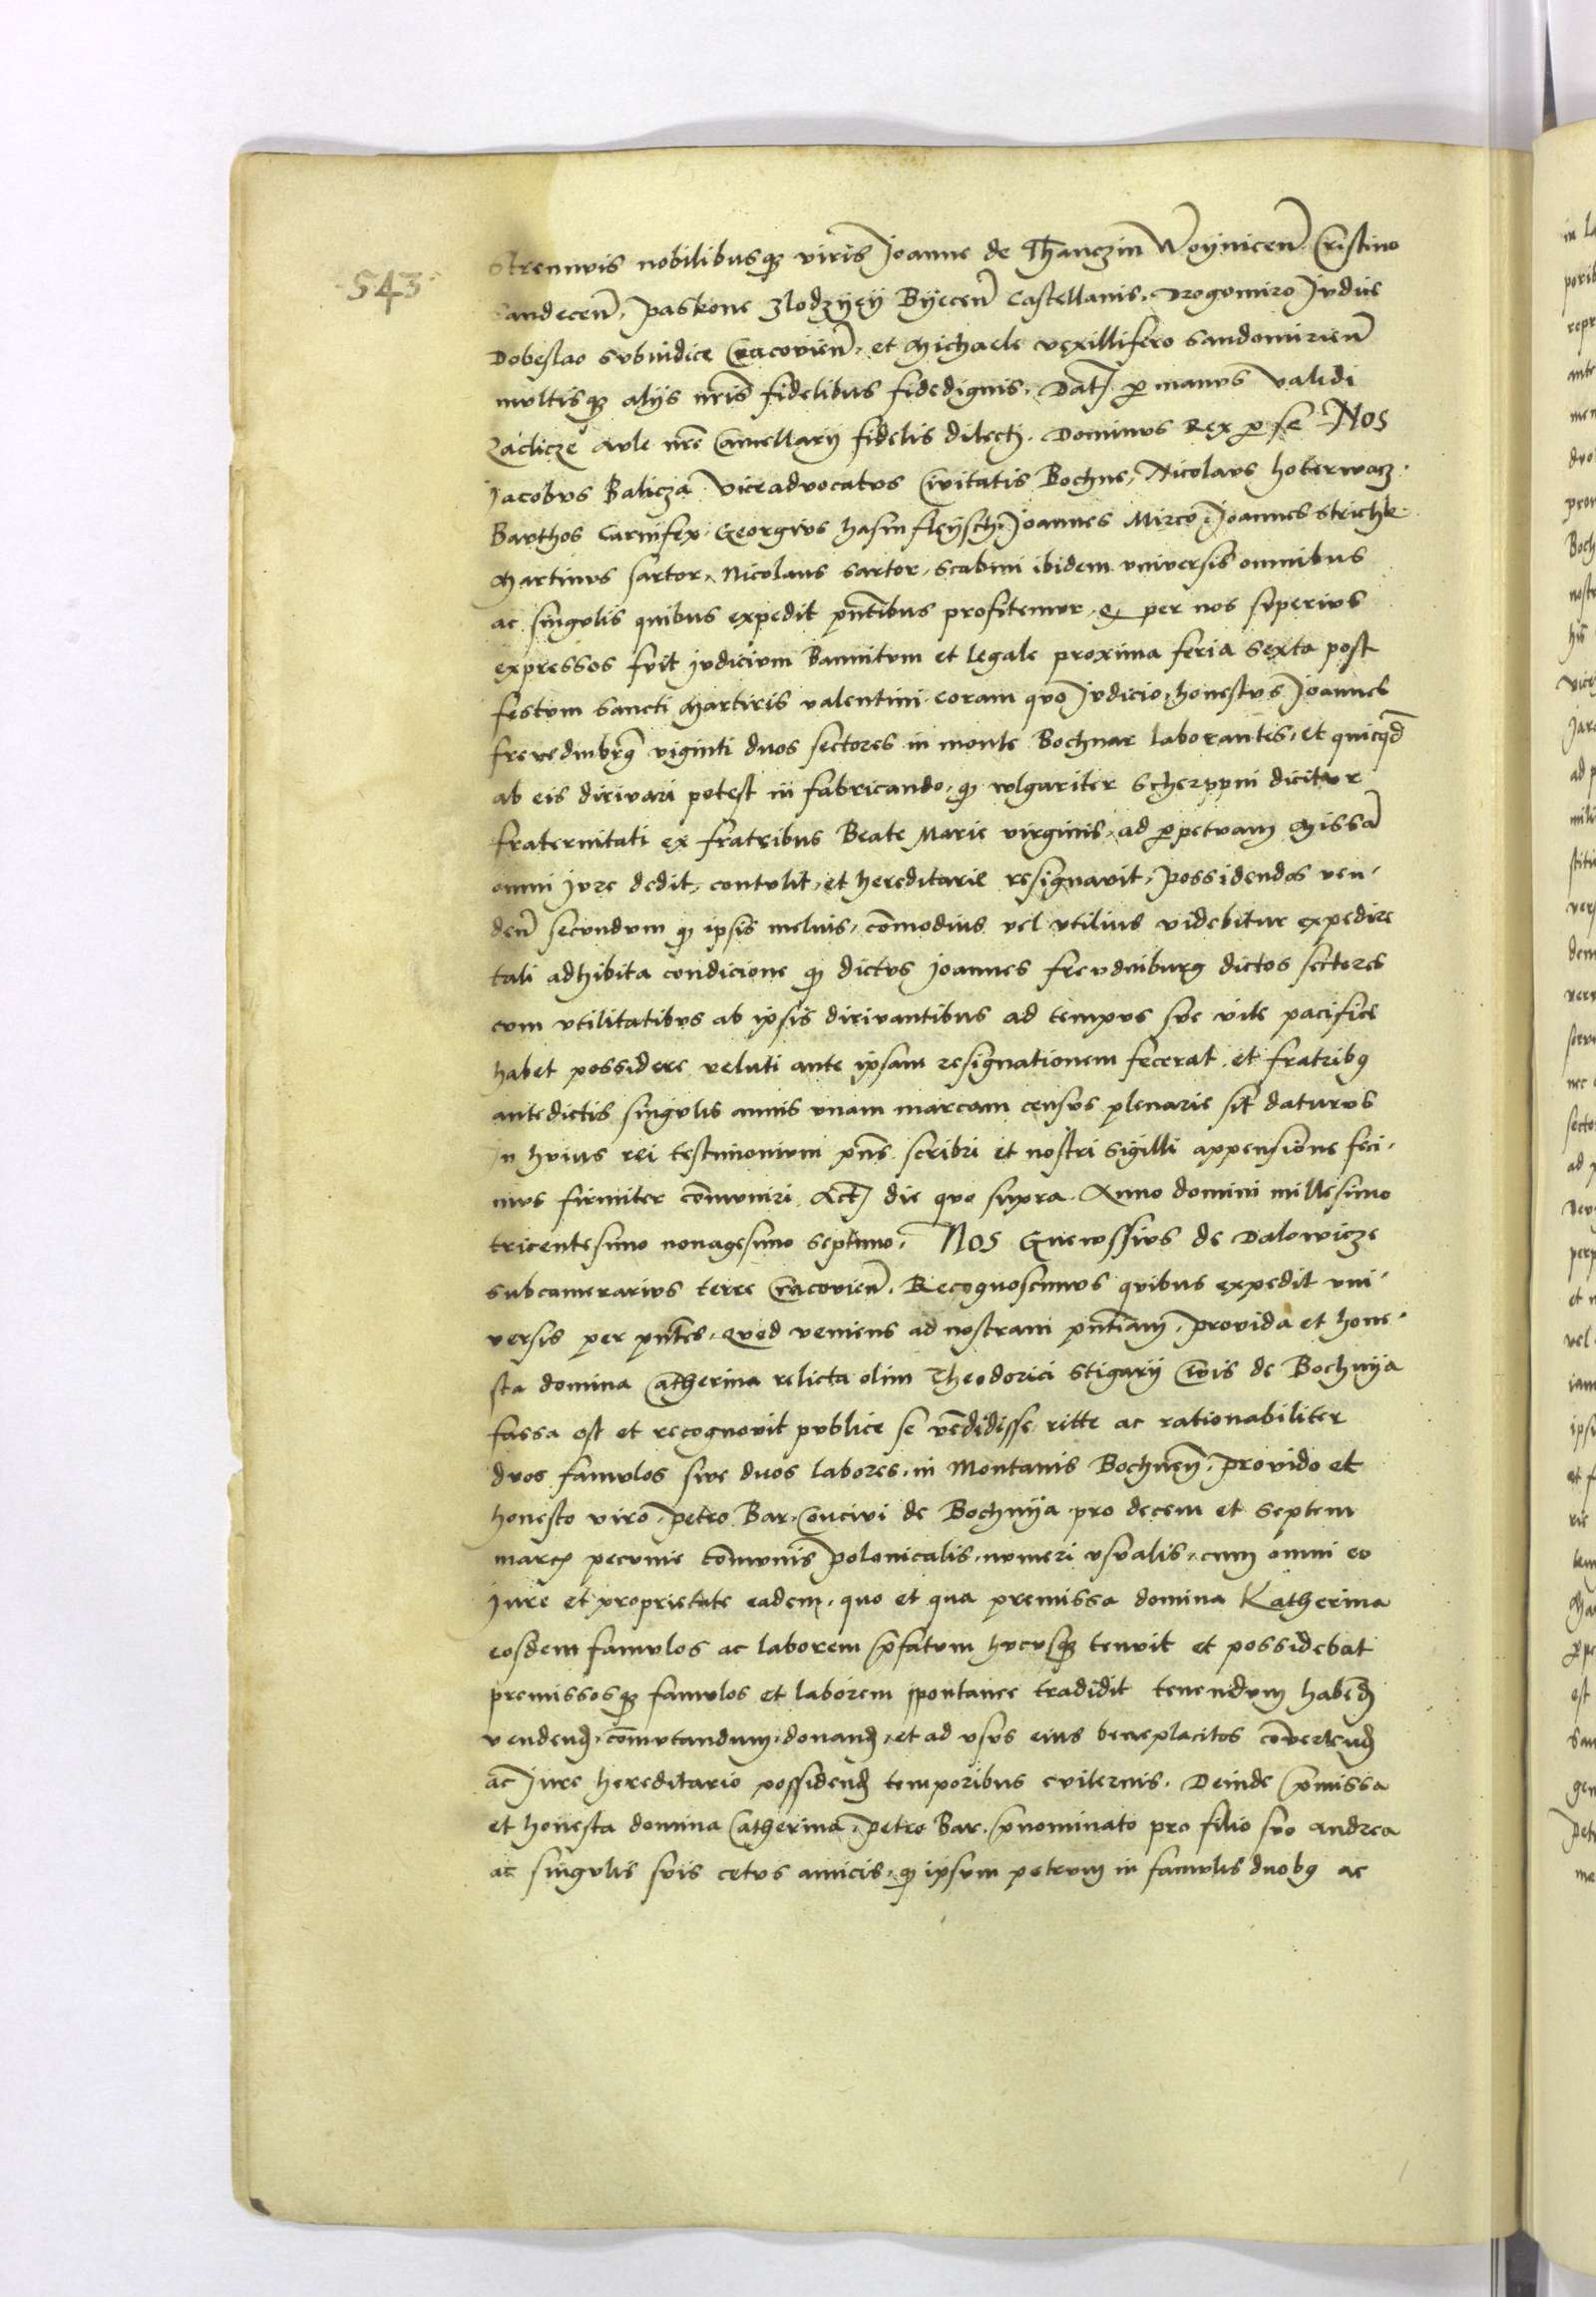 543
Strenuis nobilibusq viris Joanne de Thanczin Woynicen Cristino
Sandecen, Paskone Zlodzyey Byecen Castellanis, Drogomiro Judice
Dobeslao subiudice Cracovien, et Michaele vexillifero Sandomirien
multisq alijs nris fidelibus fidedignis. Dat p manus validi
Zaclicze aule nre Cancellarij fidelis dilecti. Dominus Rex p se Nos
Jacobus Balicza viceadvocatus Civitatis Bochne, Nicolaus hoterwacz.
Barthos Carnifex, Georgius hasinfleysch, Joannes Mirco, Joannes strichk.
Martinus sartor, Nicolaus sartor, scabini ibidem universis omnibus
ac singulis quibus expedit pntibus profitemur, q per nos superius
expressos fuit judicium Bannitum et legale proxima feria sexta post
festum Sancti Martiris valentini, coram quo judicio, honestus Joannes
frevdnburg viginti duos sectores in monte Bochnar laborantes, et quicqd
ab eis dirivari potest in fabricando, q vulgariter scherppni dicitur
fraternitati ex fratribus Beate Marie virginis, ad perpetuam Missa
omni jure dedit, contulit, et hereditarie resignavit, possidendos ven-
den secundum q ipsis melius, comodius vel utilius videbitur expedire
tali adhibita condicione q dictus Joannes frevdniburg dictos sectores
cum utilitatibus ab ipsis dirivantibus ad tempus sue vite pacifice
habet possidere veluti ante ipsam resignationem fecerat, et fratribq
antedictis singulis annis unam marcam census plenarie sit daturus
In huius rei testimonium pns scribi et nostri sigilli appensione feci-
mus firmiter comuniri Act die quo supra. Anno domini millesimo
tricentesimo nonagesimo septimo. Nos Gnewssius de Dalowicze
subcamerarius terre Cracovien. Recognoscimus quibus expedit uni-
versis per pntes, Quod veniens ad nostram pntiam, provida et hone-
sta domina Catherina relicta olim Theodorici Stigarij Civis de Bochnya
fassa est et recognovit publice se vendidisse ritte ac rationabiliter
duos famulos sive duos labores, in Montanis Bochnen, provido et
honesto viro, Petro Bar, Concivi de Bochnya pro decem et septem
marcis pecunie comunis polonicalis, numeri usualis, cum omni eo
Jure et proprietate eadem, quo et qua premissa domina Katherina
eosdem famulos ac laborem pfatum hucusq tenuit et possidebat
premissosq famulos et laborem spontanee tradidit tenendum habend
vendend, comutandum, donand, et ad usus eius beneplacitos convertend
ac Jure hereditario possidend temporibus eviternis. Deinde pmissa
et honesta domina Catherina, Petro Bar, pnominato pro filio suo Andrea
ac singulis suis cetus amicis, q ipsum petrum in famulis duobq ac